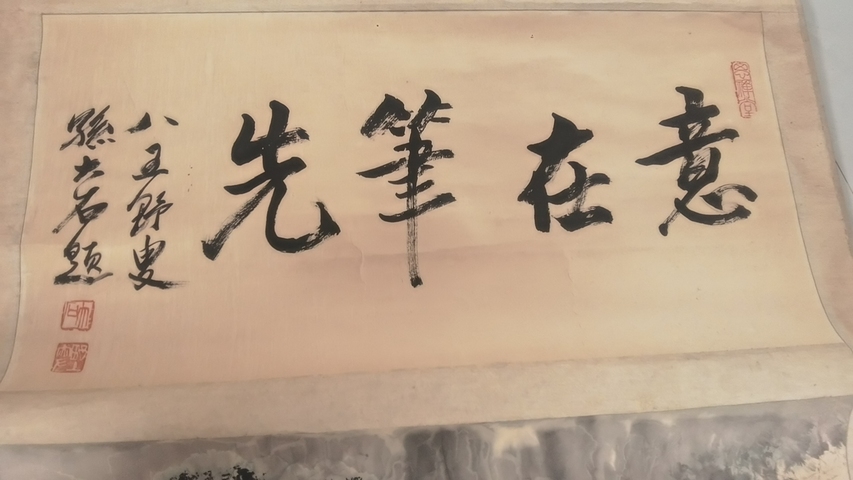 意在筆先
八五野叟
孫大石題
大石